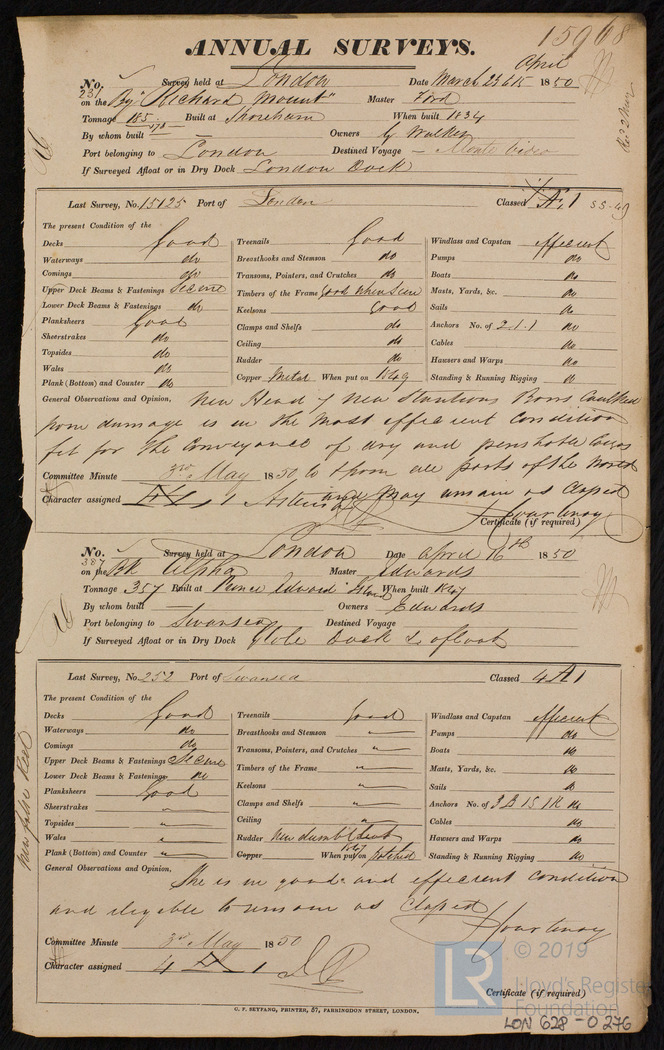 15968
ANNUAL SURVEYS.
No. 231 Survey held at London Date March 23 & 15 April 1850
on the Bg "Richard Mount" Master Ford
Tonnage 185 Built at Shoreham When built 1834
178
By whom built — Owners G Walker
Port belonging to London Destined Voyage – Monte Video
If Surveyed Afloat or in Dry Dock London Dock
Last Survey, No. 15125 Port of London Classed Æ 1 SS-49
The present Condition of the
Decks Good Treenails Good Windlass and Capstan efficient
Waterways do Breasthooks and Stemson do Pumps do
Comings do Transoms, Pointers, and Crutches do Boats do
Upper Deck Beams & Fastenings Secure Timbers of the Frame Good when seen Masts, Yards, &c. do
Lower Deck Beams & Fastenings do Keelsons Good Sails do
Planksheers Good Clamps and Shelfs do Anchors No. of 2.1.1 do
Sheerstrakes do Ceiling do Cables do
Topsides do Rudder do Hawsers and Warps do
Wales do Copper Metal When put on 1849 Standing & Running Rigging do
Plank (Bottom) and Counter do
General Observations and Opinion, New Head & new Stantions Bows Caulked
from damage is in the most efficient condition
fit for the Conveyance of dry and perishable Cargoes
Committee Minute 3rd May 1850 to & from all parts of the World
Character assigned Æ 1 and may remain as Classed
Courtenay
Certificate (if required)
No. 387 Survey held at London Date April 16th 1850
on the Bk Alpha Master Edwards
Tonnage 357 Built at Prince Edward Island When built 1847
By whom built — Owners Edwards
Port belonging to Swansea Destined Voyage
If Surveyed Afloat or in Dry Dock Globe Dock & afloat
Last Survey, No. 252 Port of Swansea Classed 4 A 1
The present Condition of the
Decks Good Treenails Good Windlass and Capstan efficient
Waterways do Breasthooks and Stemson " Pumps do
Comings do Transoms, Pointers, and Crutches " Boats do
Upper Deck Beams & Fastenings Secure Timbers of the Frame " Masts, Yards, &c. do
Lower Deck Beams & Fastenings do Keelsons " Sails do
Planksheers Good Clamps and Shelfs " Anchors No. of 3 B 1 S 1 K do
Sheerstrakes " Ceiling " Cables do
Topsides " Rudder Hawsers and Warps do
Wales " Copper When put on 1847 Standing & Running Rigging do
Plank (Bottom) and Counter "
New false Keel
General Observations and Opinion, She is in good and efficient condition
and eligible to remain as Classed
Courtenay
Committee Minute 3rd May 1850
Character assigned 4 A 1
Certificate (if required)
G. F. SEYFANG, PRINTER, 57, FARRINGDON STREET, LONDON.
LR © 2019
Lloyd's Register
Foundation
LON 628-0276